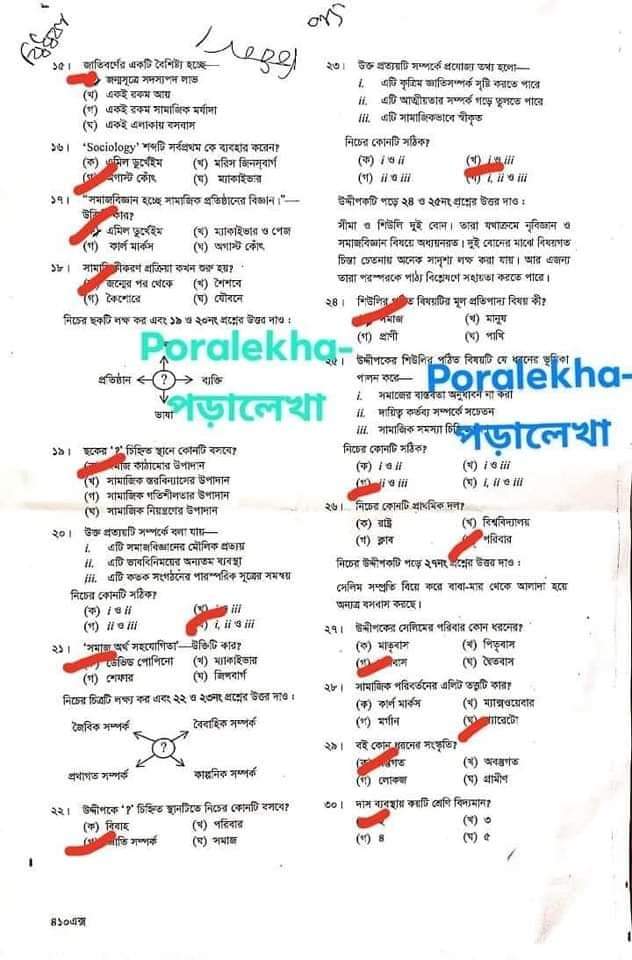 ১৫। জাতিবর্ণের একটি বৈশিষ্ট্য হচ্ছে—
জন্মসূত্রে সদস্যপদ লাভ
(খ) একই রকম আয়
(গ) একই রকম সামাজিক মর্যাদা
(ঘ) একই এলাকায় বসবাস
১৬। 'Sociology' শব্দটি সর্বপ্রথম কে ব্যবহার করেন?
(ক) এমিল ডুর্খেইম (খ) মরিস জিনসবার্গ
অগাস্ট কোঁৎ (ঘ) ম্যাকাইভার
১৭। "সমাজবিজ্ঞান হচ্ছে সামাজিক প্রতিষ্ঠানের বিজ্ঞান।"—
কার?
এমিল ডুর্খেইম (খ) ম্যাকাইভার ও পেজ
(গ) কার্ল মার্কস (ঘ) অগাস্ট কোঁৎ
১৮। সামাজিকীকরণ প্রক্রিয়া কখন শুরু হয়?
জন্মের পর থেকে (খ) শৈশবে
(গ) কৈশোরে (ঘ) যৌবনে
নিচের ছকটি লক্ষ কর এবং ১৯ ও ২০নং প্রশ্নের উত্তর দাও :
প্রতিষ্ঠান ? ব্যক্তি
ভাষা
১৯। ছকের '?' চিহ্নিত স্থানে কোনটি বসবে?
সমাজ কাঠামোর উপাদান
(খ) সামাজিক স্তরবিন্যাসের উপাদান
(গ) সামাজিক গতিশীলতার উপাদান
(ঘ) সামাজিক নিয়ন্ত্রণের উপাদান
২০। উক্ত প্রত্যয়টি সম্পর্কে বলা যায়—
i. এটি সমাজবিজ্ঞানের মৌলিক প্রত্যয়
ii. এটি ভাববিনিময়ের অন্যতম ব্যবস্থা
iii. এটি কতক সংগঠনের পারস্পরিক সূত্রের সমন্বয়
নিচের কোনটি সঠিক?
(ক) i ও ii (খ) i ও iii
(গ) ii ও iii i, ii ও iii
২১। 'সমাজ অর্থ সহযোগিতা'—উক্তিটি কার?
ডেভিড পোপিনো (খ) ম্যাকাইভার
(গ) শেফার (ঘ) জিন্সবার্গ
নিচের চিত্রটি লক্ষ্য কর এবং ২২ ও ২৩নং প্রশ্নের উত্তর দাও :
জৈবিক সম্পর্ক বৈবাহিক সম্পর্ক
?
প্রথাগত সম্পর্ক কাল্পনিক সম্পর্ক
২২। উদ্দীপকে '?' চিহ্নিত স্থানটিতে নিচের কোনটি বসবে?
(ক) বিবাহ (খ) পরিবার
জ্ঞাতি সম্পর্ক (ঘ) সমাজ
৪১০এক্স
২৩। উক্ত প্রত্যয়টি সম্পর্কে প্রযোজ্য তথ্য হলো—
i. এটি কৃত্রিম জ্ঞাতিসম্পর্ক সৃষ্টি করতে পারে
ii. এটি আত্মীয়তার সম্পর্ক গড়ে তুলতে পারে
iii. এটি সামাজিকভাবে স্বীকৃত
নিচের কোনটি সঠিক?
(ক) i ও ii (খ) i ও iii
(গ) ii ও iii i, ii ও iii
উদ্দীপকটি পড়ে ২৪ ও ২৫নং প্রশ্নের উত্তর দাও :
সীমা ও শিউলি দুই বোন। তারা যথাক্রমে নৃবিজ্ঞান ও
সমাজবিজ্ঞান বিষয়ে অধ্যয়নরত। দুই বোনের মাঝে বিষয়গত
চিন্তা চেতনায় অনেক সাদৃশ্য লক্ষ করা যায়। আর এজন্য
তারা পরস্পরকে পাঠ্য বিশ্লেষণে সহায়তা করতে পারে।
২৪। শিউলির পঠিত বিষয়টির মূল প্রতিপাদ্য বিষয় কী?
সমাজ (খ) মানুষ
(গ) প্রাণী (ঘ) পাখি
২৫। উদ্দীপকের শিউলির পঠিত বিষয়টি যে ধরনের ভূমিকা
পালন করে—
i. সমাজের বাস্তবতা অনুধাবন না করা
ii. দায়িত্ব কর্তব্য সম্পর্কে সচেতন
iii. সামাজিক সমস্যা
নিচের কোনটি সঠিক?
(ক) i ও ii (খ) i ও iii
(গ) ii ও iii (ঘ) i, ii ও iii
২৬। নিচের কোনটি প্রাথমিক দল?
(ক) রাষ্ট্র (খ) বিশ্ববিদ্যালয়
(গ) ক্লাব পরিবার
নিচের উদ্দীপকটি পড়ে ২৭নং প্রশ্নের উত্তর দাও :
সেলিম সম্প্রতি বিয়ে করে বাবা-মার থেকে আলাদা হয়ে
অন্যত্র বসবাস করছে।
২৭। উদ্দীপকের সেলিমের পরিবার কোন ধরনের?
(ক) মাতৃবাস (খ) পিতৃবাস
(ঘ) দ্বৈতবাস
২৮। সামাজিক পরিবর্তনের এলিট তত্ত্বটি কার?
(ক) কার্ল মার্কস (খ) ম্যাক্সওয়েবার
(গ) মর্গান (ঘ) প্যারেটো
২৯। বই কোন ধরনের সংস্কৃতি?
বস্তুগত (খ) অবস্তুগত
(গ) লোকজ (ঘ) গ্রামীণ
৩০। দাস ব্যবস্থায় কয়টি শ্রেণি বিদ্যমান?
২ (খ) ৩
(গ) ৪ (ঘ) ৫
Poralekha-
পড়ালেখা
Poralekha-
পড়ালেখা